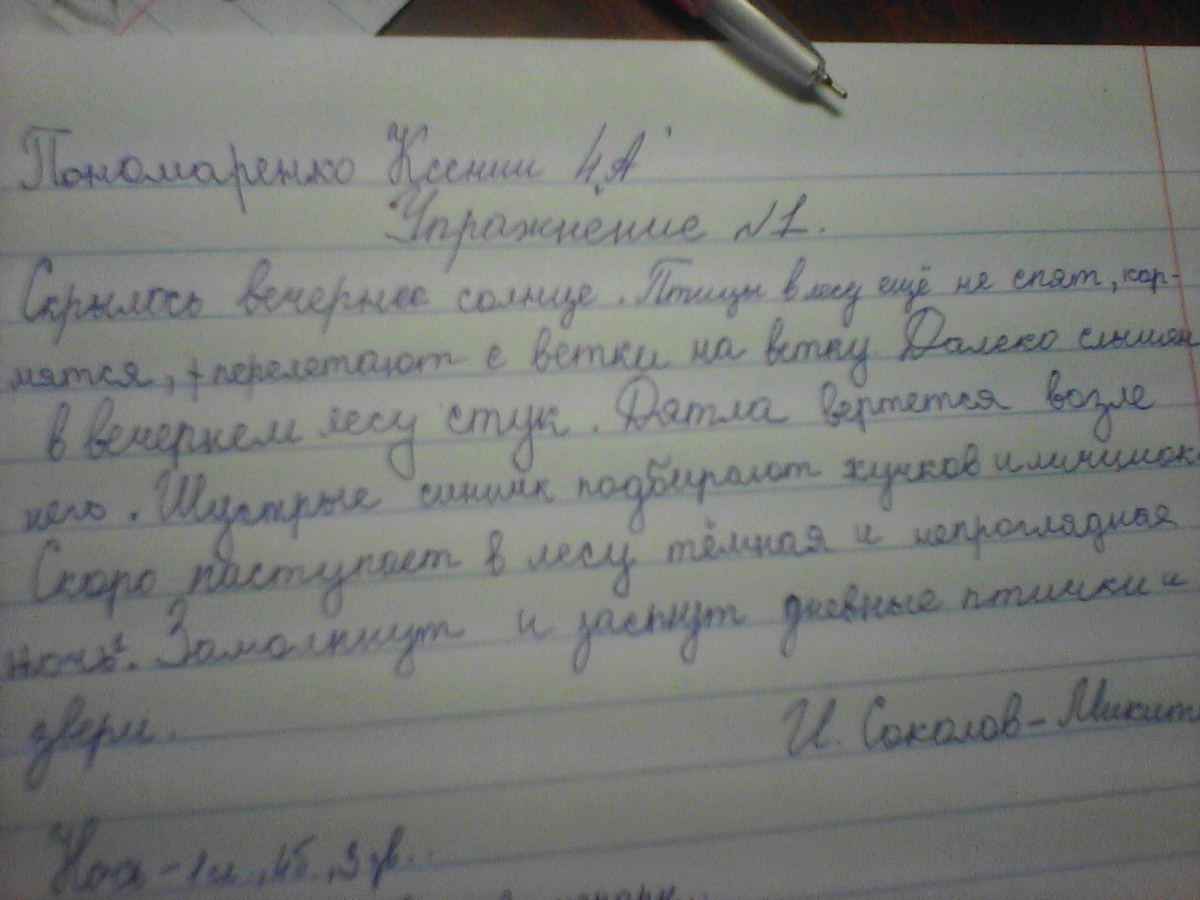 Пономаренко Ксении 4,А'
Упражнение №1.
Скрылось вечернее солнце. Птицы в лесу ещё не спят, кор-
мятся, перелетают с ветки на ветку Далеко слышен
в вечернем лесу стук. Дятла вертется возле
него. Шустрые синичк подбирают жучков и личинок
Скоро наступает в лесу тёмная и непроглядная
ночь². Замолкнут и заснут дневные птички и
звери.
И. Соколов-Микит
Ночь - 1 сл., 4 б., 3 зв.